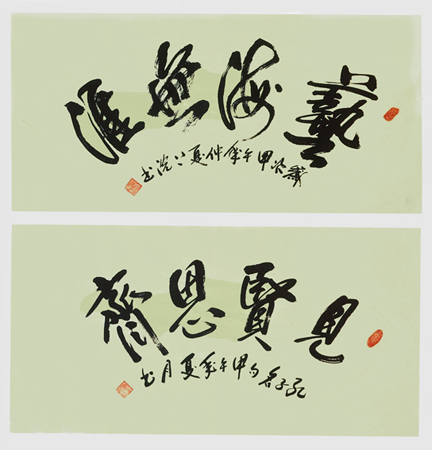 藝海無涯
歲次甲午年仲夏书
見賢思齊
孔子名句甲午年夏月书